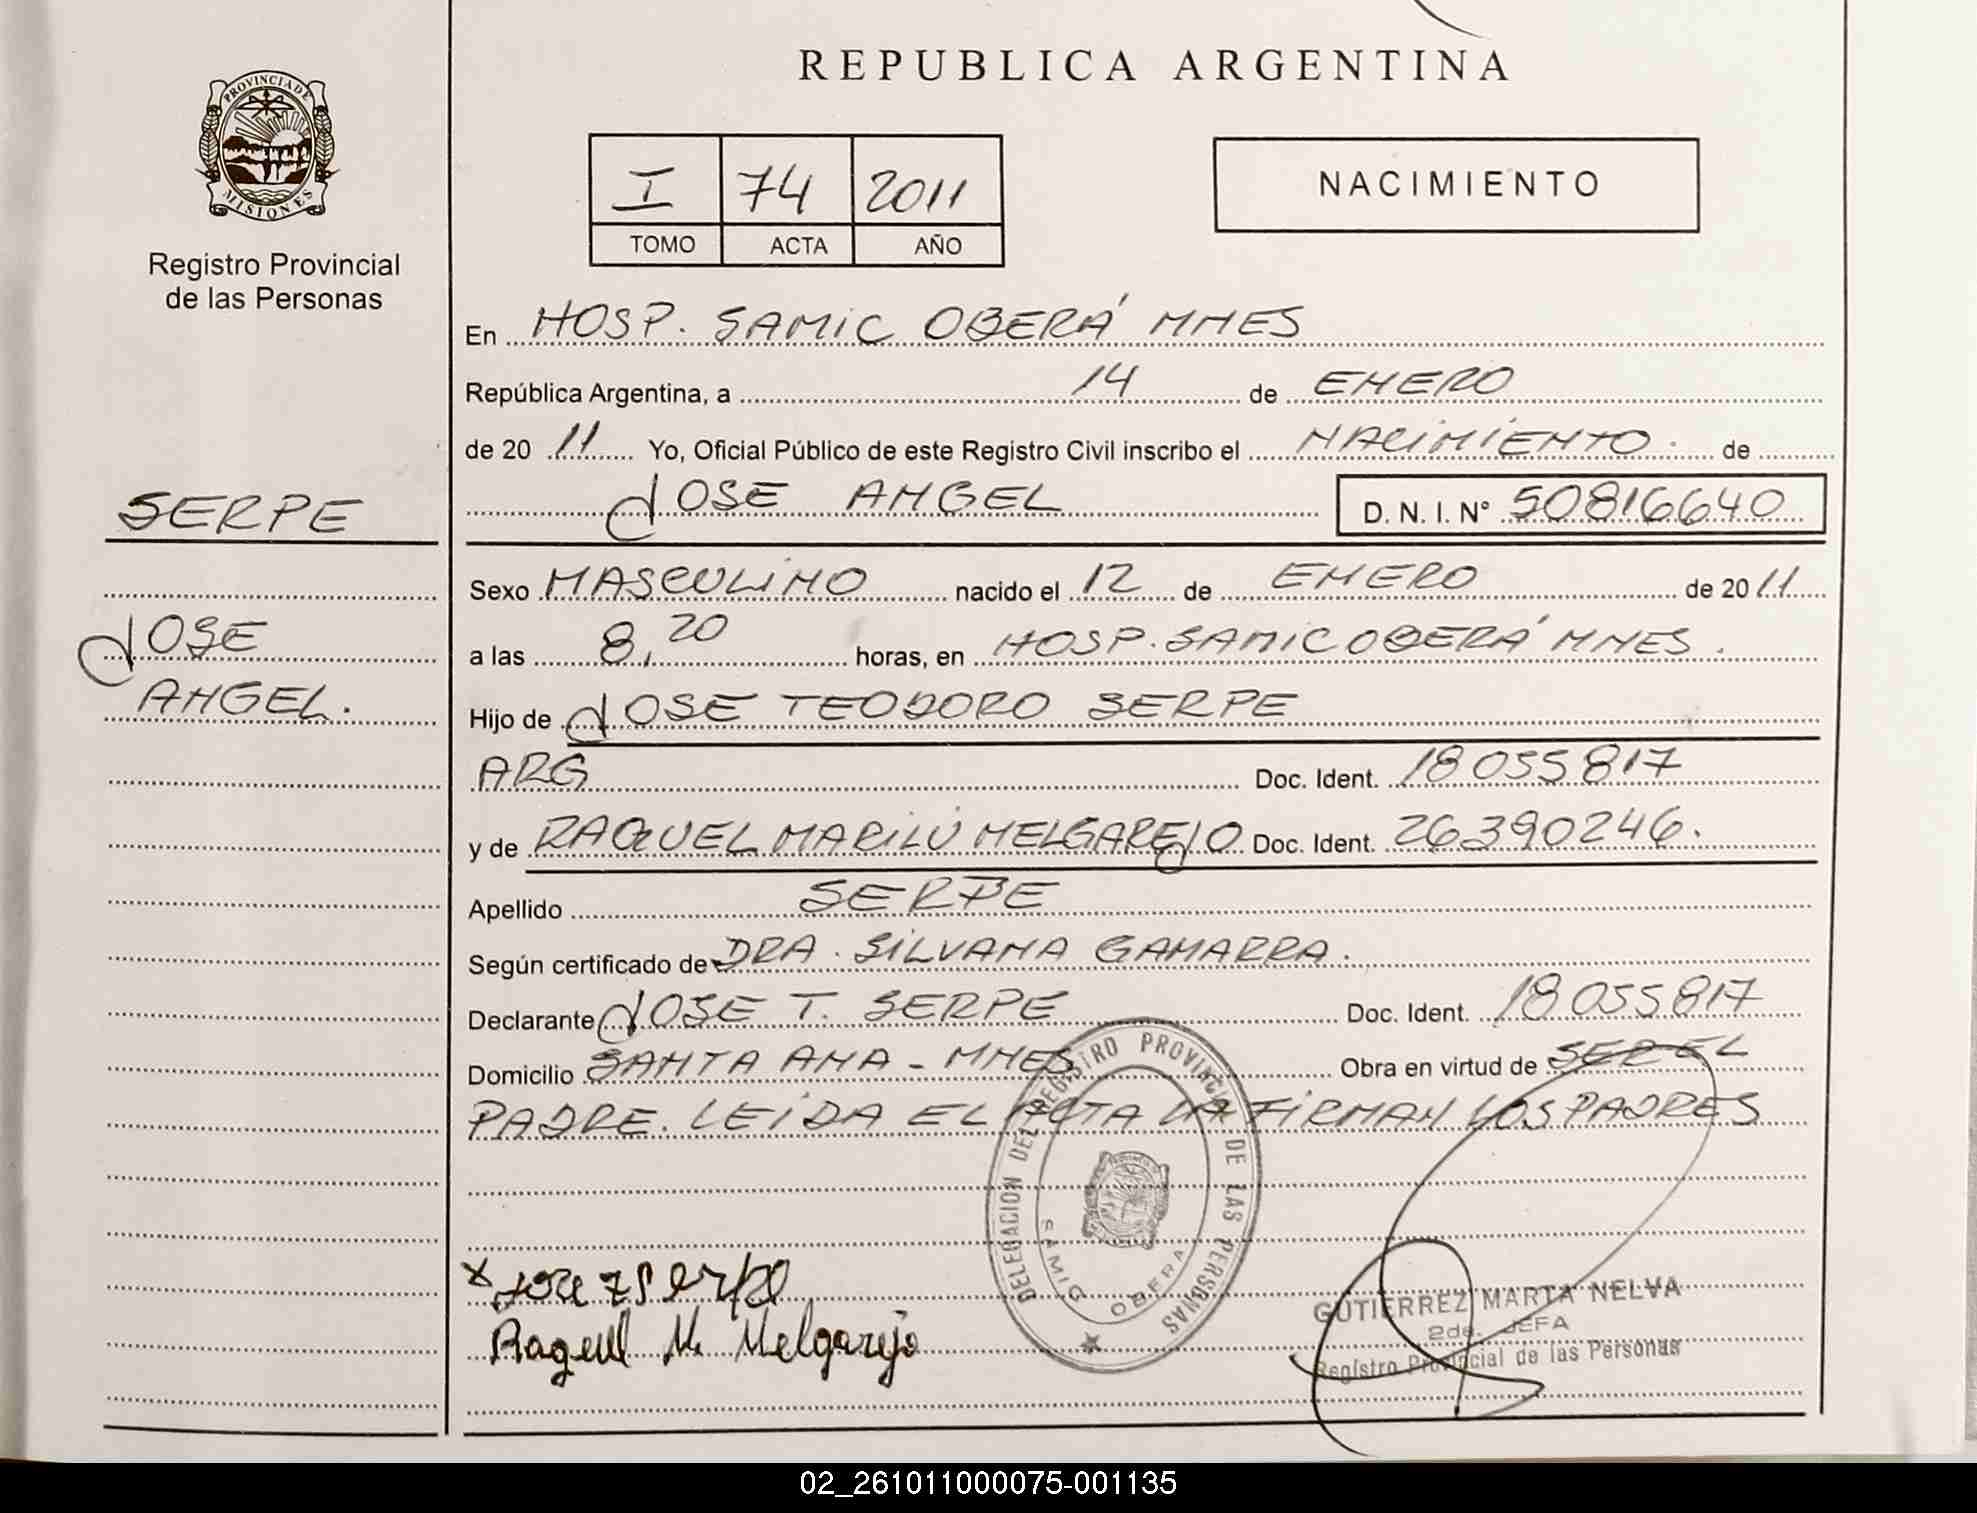 REPUBLICA ARGENTINA
PROVINCIA DE
MISIONES
Registro Provincial
de las Personas
I 74 2011
TOMO ACTA AÑO
NACIMIENTO
En HOSP. SAMIC OBERÁ MNES
República Argentina, a 14 de ENERO
de 20 11 Yo, Oficial Público de este Registro Civil inscribo el NACIMIENTO. de
JOSE ANGEL D. N. I. N° 50816640
SERPE
JOSE
ANGEL.
Sexo MASCULINO nacido el 12 de ENERO de 20 11
a las 8,20 horas, en HOSP. SAMIC OBERÁ MNES.
Hijo de JOSE TEODORO SERPE
ARG Doc. Ident. 18055817
y de RAQUEL MARILÚ MELGAREJO Doc. Ident. 26390246.
Apellido SERPE
Según certificado de DRA. SILVANA GAMARRA.
Declarante JOSE T. SERPE Doc. Ident. 18055817
Domicilio SANTA ANA - MNES Obra en virtud de SER EL
PADRE. LEIDA EL ACTA LA FIRMAN LOS PADRES
DELEGACION DEL REGISTRO PROVINCIAL DE LAS PERSONAS
SAMIC OBERA
x Jose T Serpe
Raquel M. Melgarejo
GUTIERREZ MARTA NELVA
2da. JEFA
Registro Provincial de las Personas
02_261011000075-001135